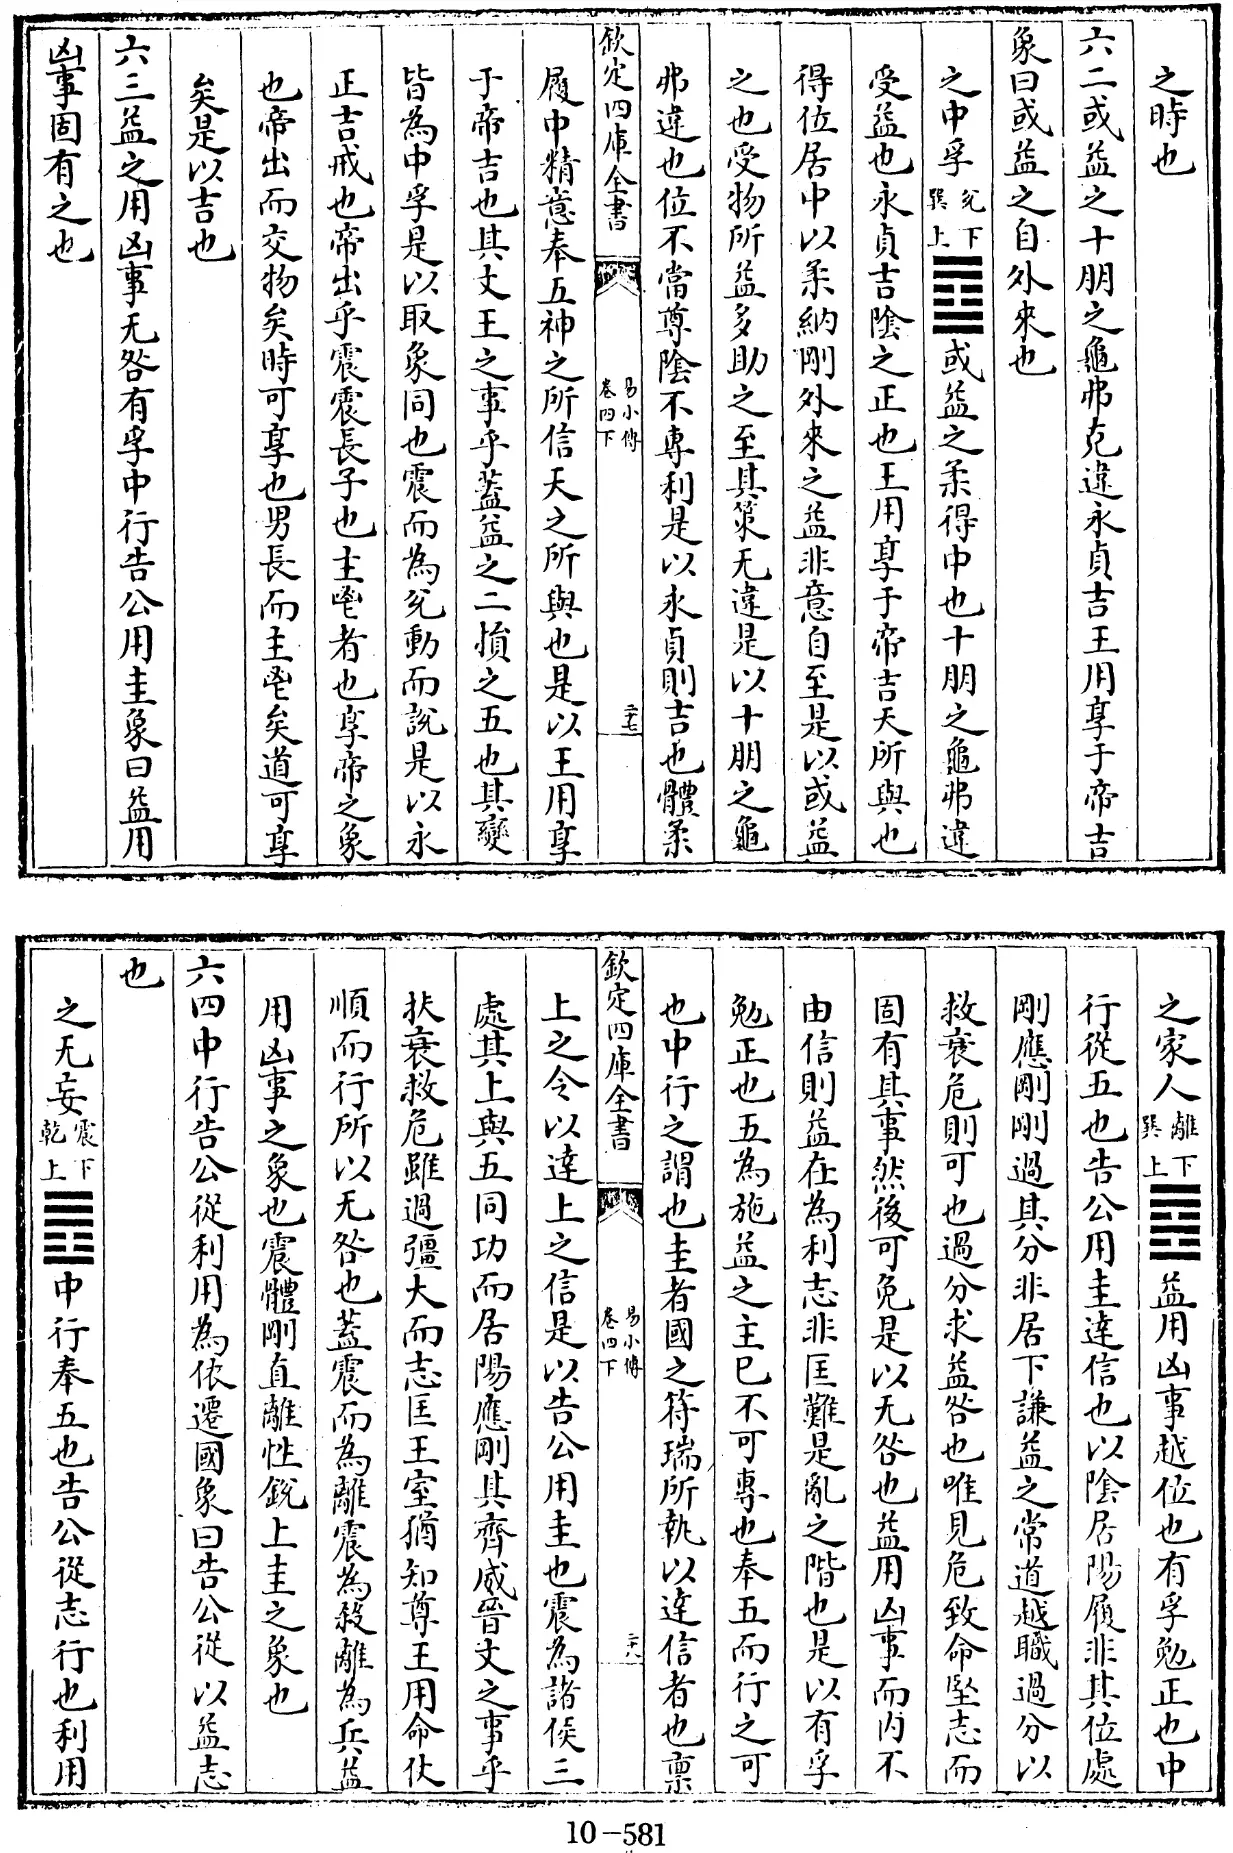 之時也
六二或益之十朋之龜弗克違永貞吉王用享于帝吉
象曰或益之自外來也
之中孚兌下巽上䷼或益之柔得中也十朋之龜弗違
受益也永貞吉陰之正也王用享于帝吉天所與也
得位居中以柔納剛外來之益非意自至是以或益
之也受物所益多助之至其策无違是以十朋之龜
弗違也位不當尊陰不專利是以永貞則吉也體柔
欽定四庫全書 易小傳卷四下 二十七
履中精意奉五神之所信天之所與也是以王用享
于帝吉也其文王之事乎蓋益之二損之五也其變
皆為中孚是以取象同也震而為兌動而說是以永
正吉戒也帝出乎震震長子也主鬯者也享帝之象
也帝出而交物矣時可享也男長而主鬯矣道可享
矣是以吉也
六三益之用凶事无咎有孚中行告公用圭象曰益用
凶事固有之也
之家人離下巽上䷤益用凶事越位也有孚勉正也中
行從五也告公用圭達信也以陰居陽履非其位處
剛應剛剛過其分非居下謙益之常道越職過分以
救衰危則可也過分求益咎也唯見危致命堅志而
固有其事然後可免是以无咎也益用凶事而內不
由信則益在為利志非匡難是亂之階也是以有孚
勉正也五為施益之主已不可專也奉五而行之可
也中行之謂也圭者國之符瑞所執以達信者也稟
欽定四庫全書 易小傳卷四下 二十八
上之令以達上之信是以告公用圭也震為諸侯三
處其上與五同功而居陽應剛其齊威晉文之事乎
扶衰救危雖過彊大而志匡王室猶知尊王用命伏
順而行所以无咎也蓋震而為離震為殺離為兵益
用凶事之象也震體剛直離性銳上圭之象也
六四中行告公從利用為依遷國象曰告公從以益志
也
之无妄震下乾上䷘中行奉五也告公從志行也利用
10-581